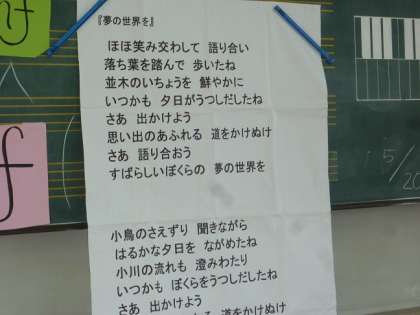 『夢の世界を』
ほほ笑み交わして 語り合い
落ち葉を踏んで 歩いたね
並木のいちょうを 鮮やかに
いつかも 夕日がうつしだしたね
さあ 出かけよう
思い出のあふれる 道をかけぬけ
さあ 語り合おう
すばらしいぼくらの 夢の世界を
小鳥のさえずり 聞きながら
はるかな夕日を ながめたね
小川の流れも 澄みわたり
いつかも ぼくらをうつしだしたね
さあ 出かけよう
道をかけぬけ
mf
f
5/
20